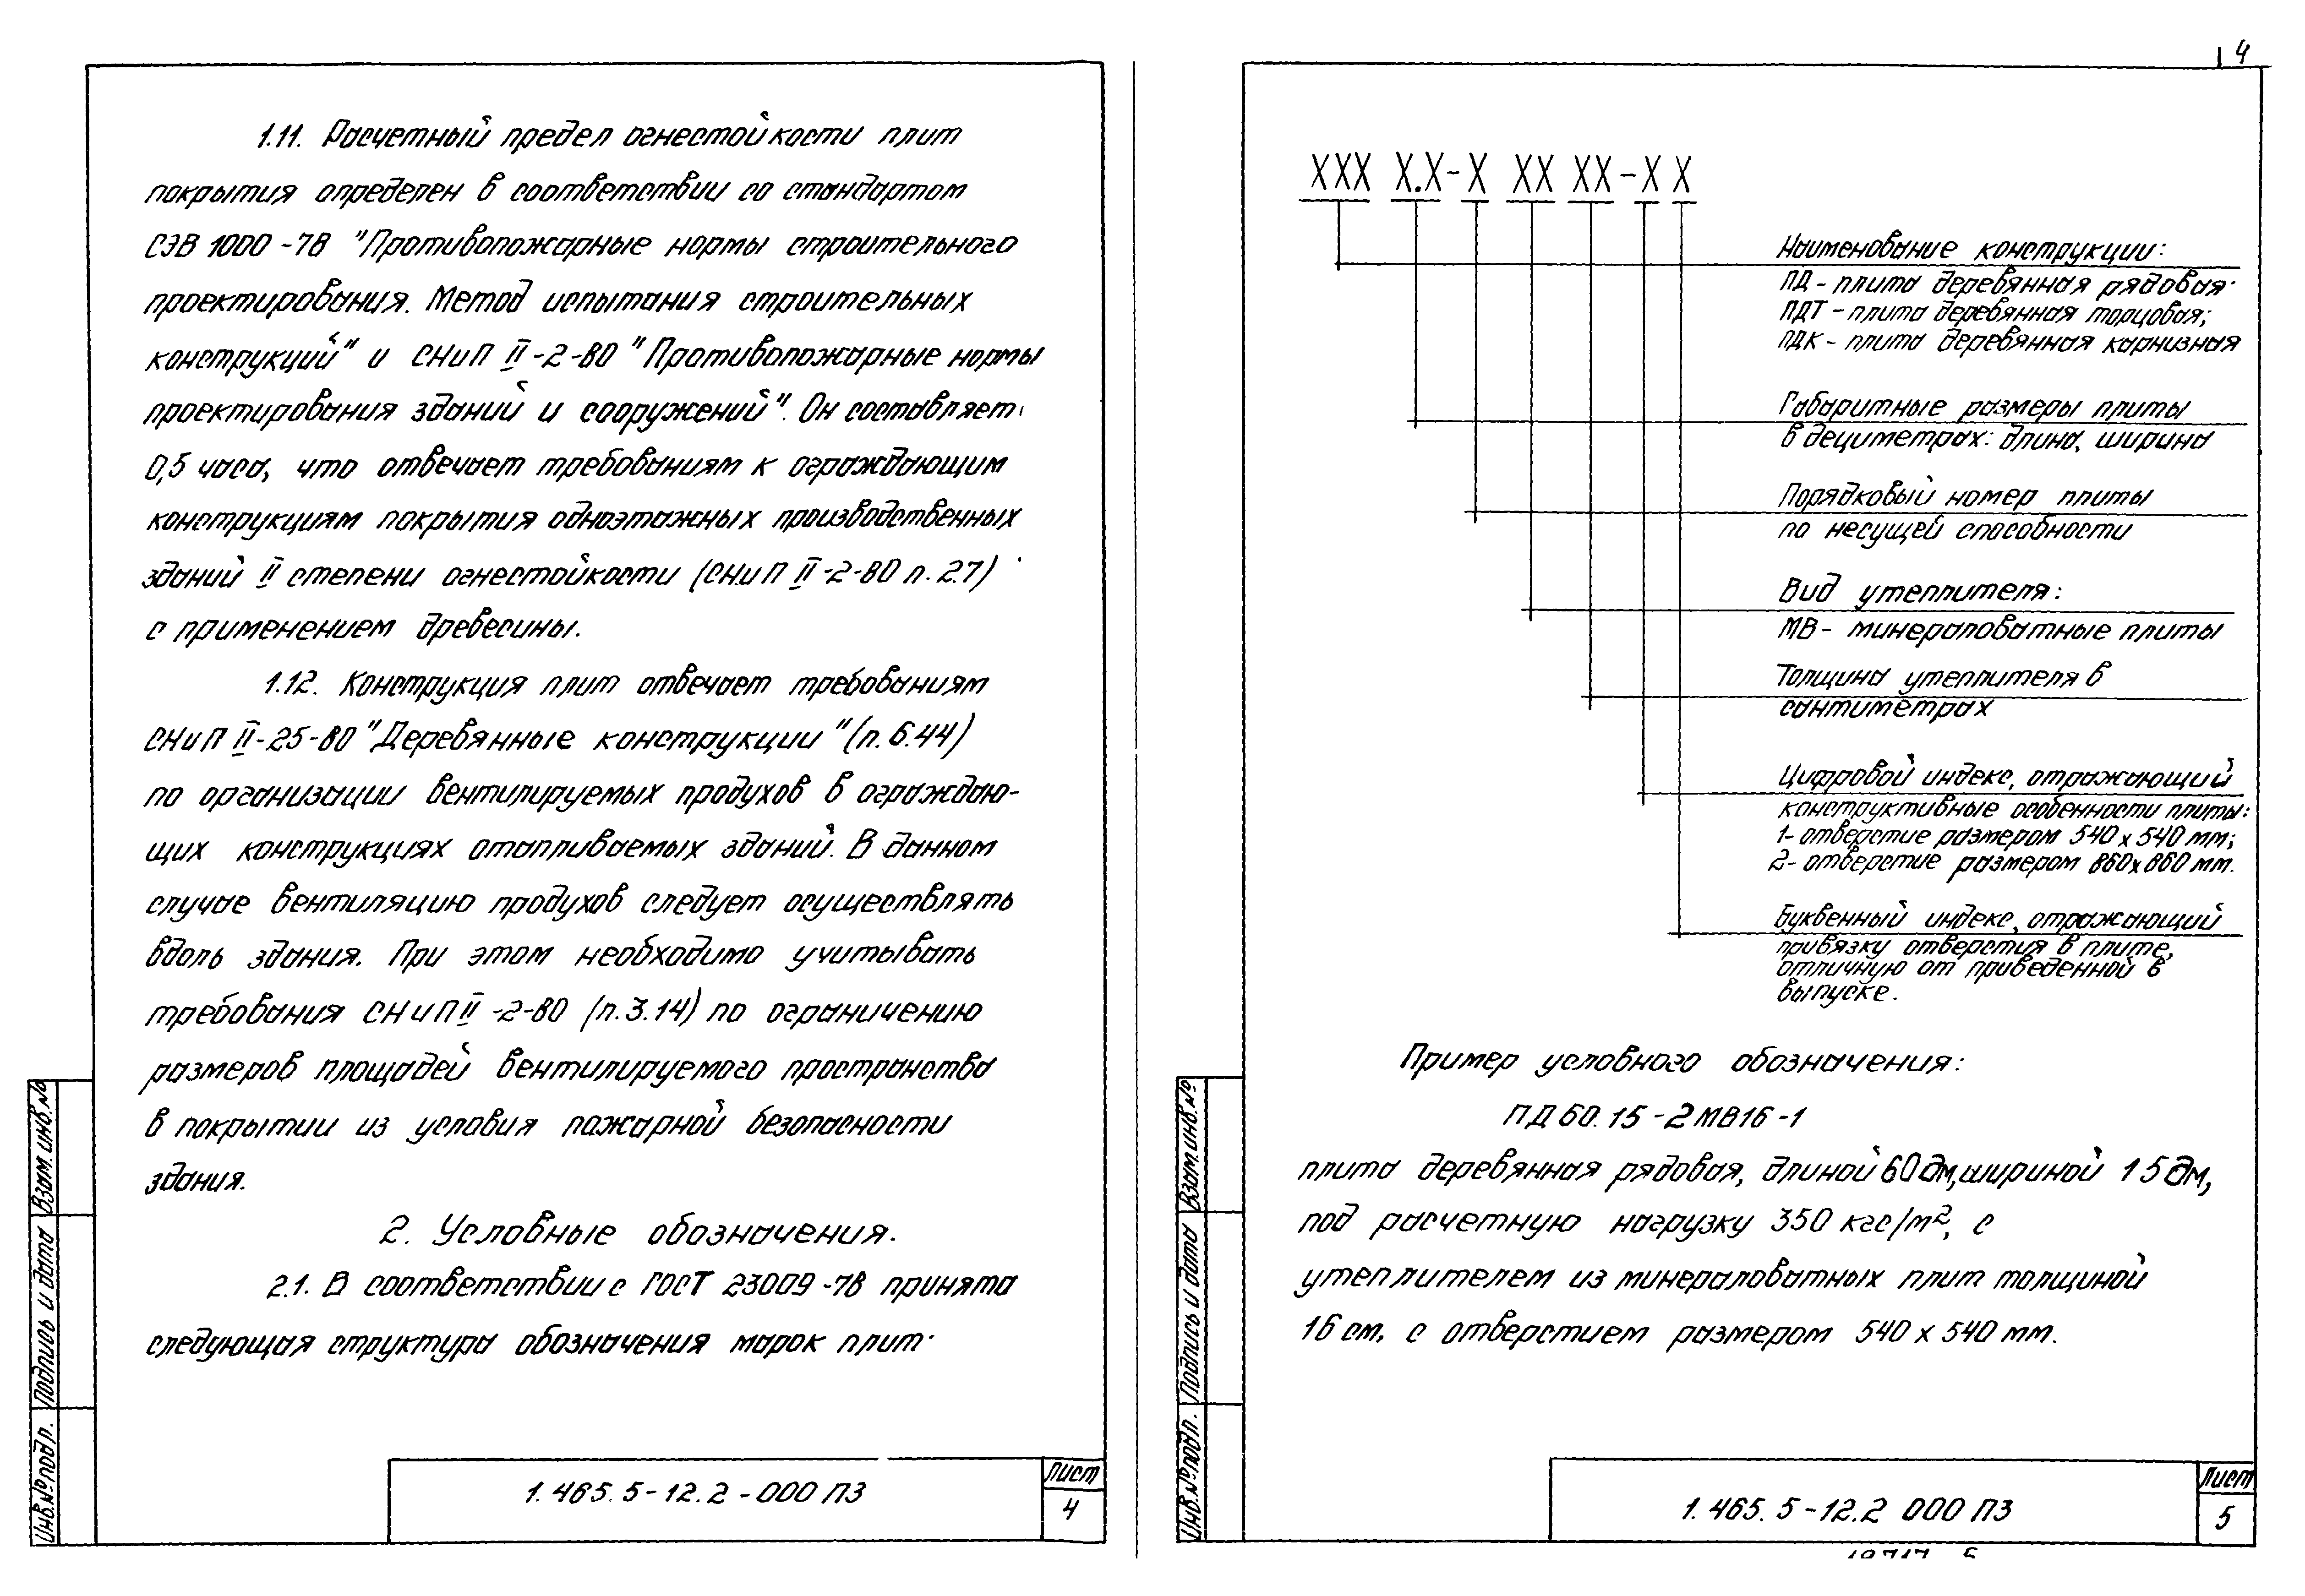 1.11. Расчетный предел огнестойкости плит
покрытия определен в соответствии со стандартом
СЭВ 1000-78 "Противопожарные нормы строительного
проектирования. Метод испытания строительных
конструкций" и СНиП II-2-80 "Противопожарные нормы
проектирования зданий и сооружений". Он составляет
0,5 часа, что отвечает требованиям к ограждающим
конструкциям покрытия одноэтажных производственных
зданий II степени огнестойкости (СНиП II-2-80 п. 2.7)
с применением древесины.
1.12. Конструкция плит отвечает требованиям
СНиП II-25-80 "Деревянные конструкции" (п.6.44)
по организации вентилируемых продухов в ограждаю-
щих конструкциях отапливаемых зданий. В данном
случае вентиляцию продухов следует осуществлять
вдоль здания. При этом необходимо учитывать
требования СНиП II-2-80 (п.3.14) по ограничению
размеров площадей вентилируемого пространства
в покрытии из условия пожарной безопасности
здания.
2. Условные обозначения.
2.1. В соответствии с ГОСТ 23009-78 принята
следующая структура обозначения марок плит:
Инв.№ подл. Подпись и дата Взам.инв.№
1.465.5-12.2-000 ПЗ
Лист
4
4
XXX X.X-X XX XX-X X
Наименование конструкции:
ПД - плита деревянная рядовая;
ПДТ - плита деревянная торцовая;
ПДК - плита деревянная карнизная
Габаритные размеры плиты
в дециметрах: длина, ширина
Порядковый номер плиты
по несущей способности
Вид утеплителя:
МВ - минераловатные плиты
Толщина утеплителя в
сантиметрах
Цифровой индекс, отражающий
конструктивные особенности плиты:
1- отверстие размером 540 х 540 мм;
2- отверстие размером 860х860 мм.
Буквенный индекс, отражающий
привязку отверстия в плите,
отличную от приведенной в
выпуске.
Пример условного обозначения:
ПД 60.15-2МВ16-1
плита деревянная рядовая, длиной 60 дм, шириной 15 дм,
под расчетную нагрузку 350 кгс/м², с
утеплителем из минераловатных плит толщиной
16 см, с отверстием размером 540 х 540 мм.
Инв.№ подл. Подпись и дата Взам.инв.№
1.465.5-12.2 000 ПЗ
Лист
5